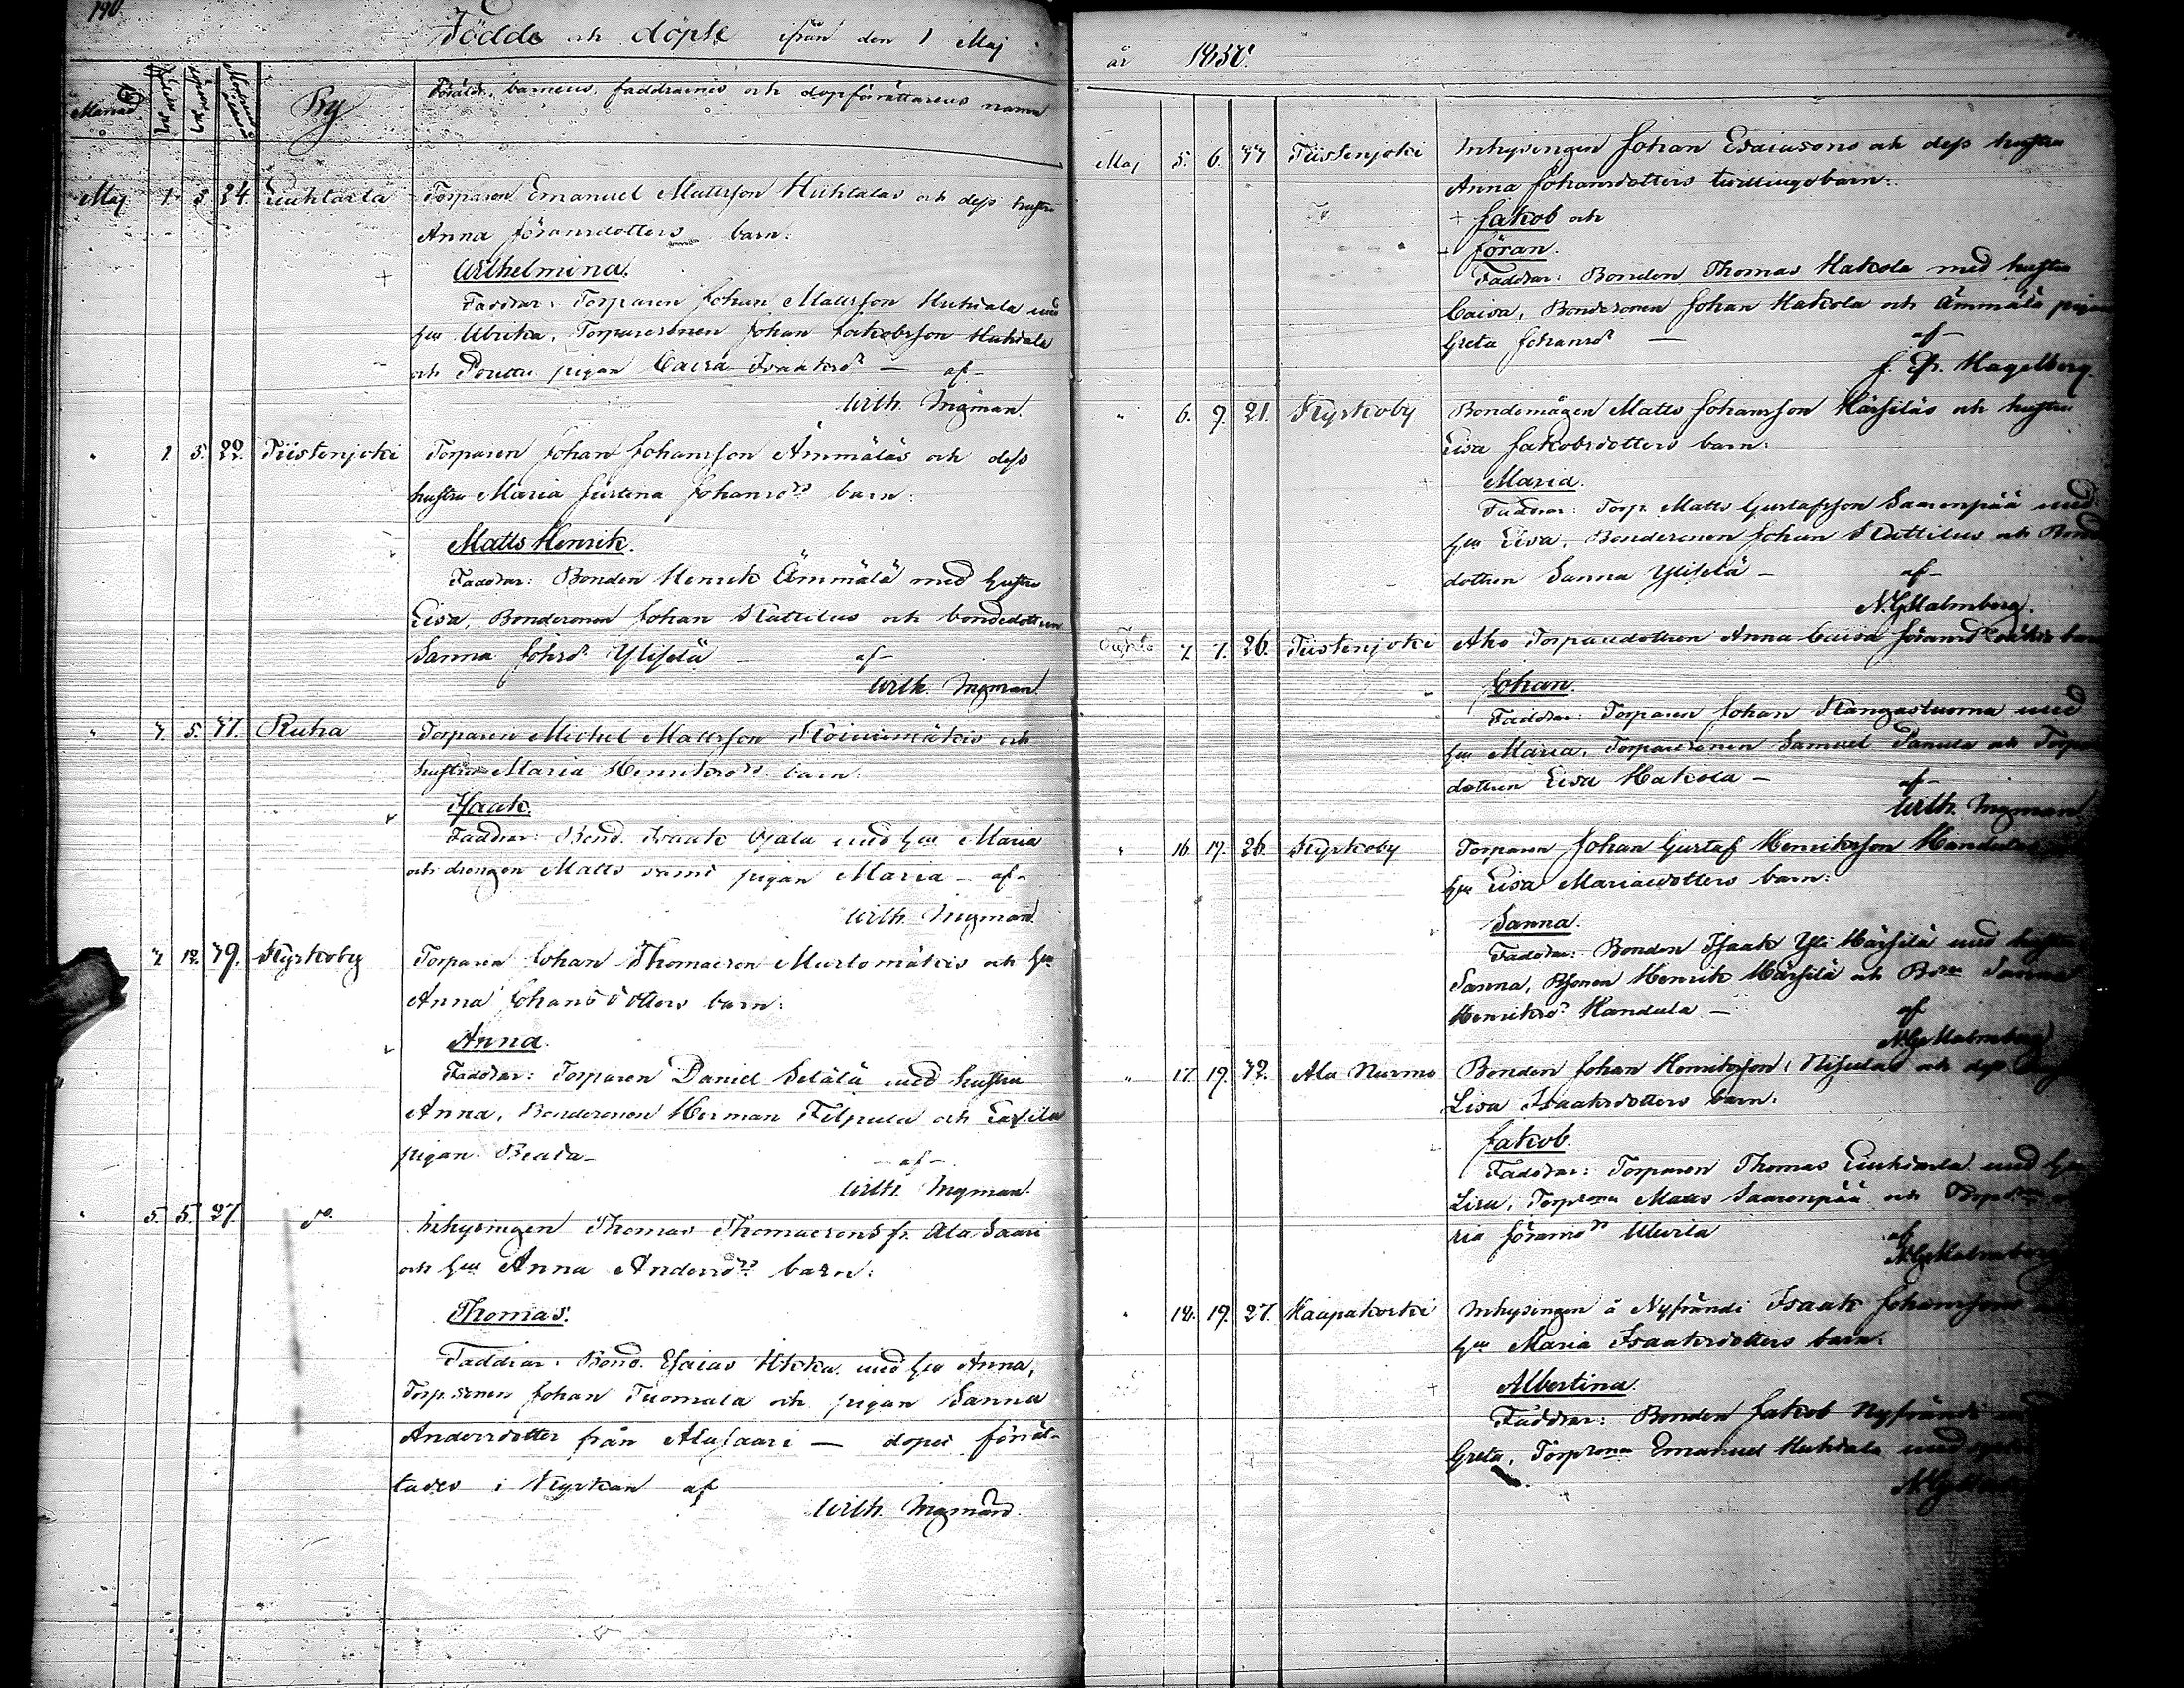 190
Födde och döpte ifrån den 1 Maj
Månad
By
Föräldr., barnens, faddrarnes och dopförrättarens namn
Maj 1. 3. 24. Liuhtarla Torparen Emanuel Mattsson Huhtalas och dess hustru
Anna Jöransdotters barn:
Wilhelmina.
Faddrar: Torparen Johan Mattsson Huhtala med
hu Ulrika, Torparesonen Johan Jakobsson Huhtala
och Pouttu pigan Caisa Isaaksdr — af —
Wilh. Ingman.
" 1. 5. 22. Tiistenjoki Torparen Johan Johansson Ämmäläs och dess
hustru Maria Justina Johansdrs barn:
Matts Henrik.
Faddrar: Bonden Henrik Ämmälä med hustru
Lisa, Bondesonen Johan Knuttilus och bondedottren
Sanna Johsdr Ylijelä — af —
Wilh. Ingman.
" 4. 5. 41. Ruha Torparen Michel Mattsson Koivumäkis och
hustru Maria Henriksdrs barn:
Isaak.
Faddrar: Bond. Isaak Ojala med hu Maria
och drengen Matts samt pigan Maria — af —
Wilh. Ingman.
4. 12. 39. Kyrkoby Torparen Johan Thomasson Murtomäkis och hu
Anna Johansdotters barn:
Anna.
Faddrar: Torparen Daniel Setälä med hustru
Anna, Bondesonen Herman Filpula och
pigan Beata — af —
Wilh. Ingman.
" 5. 5. 27. do Inhysingen Thomas Thomassons fr. Ala Saari
och hu Anna Andersdrs barn:
Thomas.
Faddrar: Bond. Esaias Ukkka med hu Anna,
Torp.sonen Johan Tuomala och pigan Sanna
Andersdotter från Alasaari — dopet förrät-
tades i Kyrkan af
Wilh. Ingman.
år 1850.
Maj 5. 6. 44 Tiistenjoki Inhysingen Johan Esaiasons och dess hustru
Anna Johansdotters tvillingebarn:
+ Jakob och
Jöran.
Faddrar: Bonden Thomas Hakola med hustru
Caisa, Bondesonen Johan Hakola och Ämmälä pigan
Greta Johansdr — af —
Hagelberg.
" 6. 9. 21. Kyrkoby Bondemågen Matts Johansson Härsiläs och hustru
Lisa Jakobsdotters barn:
+ Maria.
Faddrar: Torp. Matts Gustafsson Saarenpää med
hu Lisa, Bondesonen Johan Knuttilus och Bonde
dottren Sanna Ylijelä — af —
N. G. Malmberg.
Oäkta 7. 7. 26. Tiistenjoki Aho Torparedottren Anna Caisa Jöransdrs oäkta barn
Johan.
Faddrar: Torparen Johan Kangasluoma med
hu Maria, Torparesonen Samuel Panula och Torpare
dottren Lisa Hakola — af —
Wilh. Ingman
" 16. 17. 26. Kyrkoby Torparen Johan Gustaf Henriksson Handulas
hu Lisa Mariasdotters barn:
Sanna.
Faddrar: Bonden Isaak Yli Härsilä med hustru
Sanna, Bsonen Henrik Härsilä och Sanna
Henriksdr Handula — af
N. G. Malmberg
" 17. 19. 32. Ala Nurmo Bonden Johan Henriksson Nisulas och dess
Lisa Isaaksdotters barn:
Jakob.
Faddrar: Torparen Thomas Liuhtarla med hu
Lisa, Torpsonen Matts Saarenpää och
ria Jöransdr Ulvila af
N. G. Malmberg
" 18. 19. 27. Haapakoski Inhysingen å Nyfrändi Isaak Johanssons
hu Maria Isaaksdotters barn:
+ Albertina.
Faddrar: Bonden Jakob Nyfrändi
Greta, Torpsonen Emanuel Huhtala med